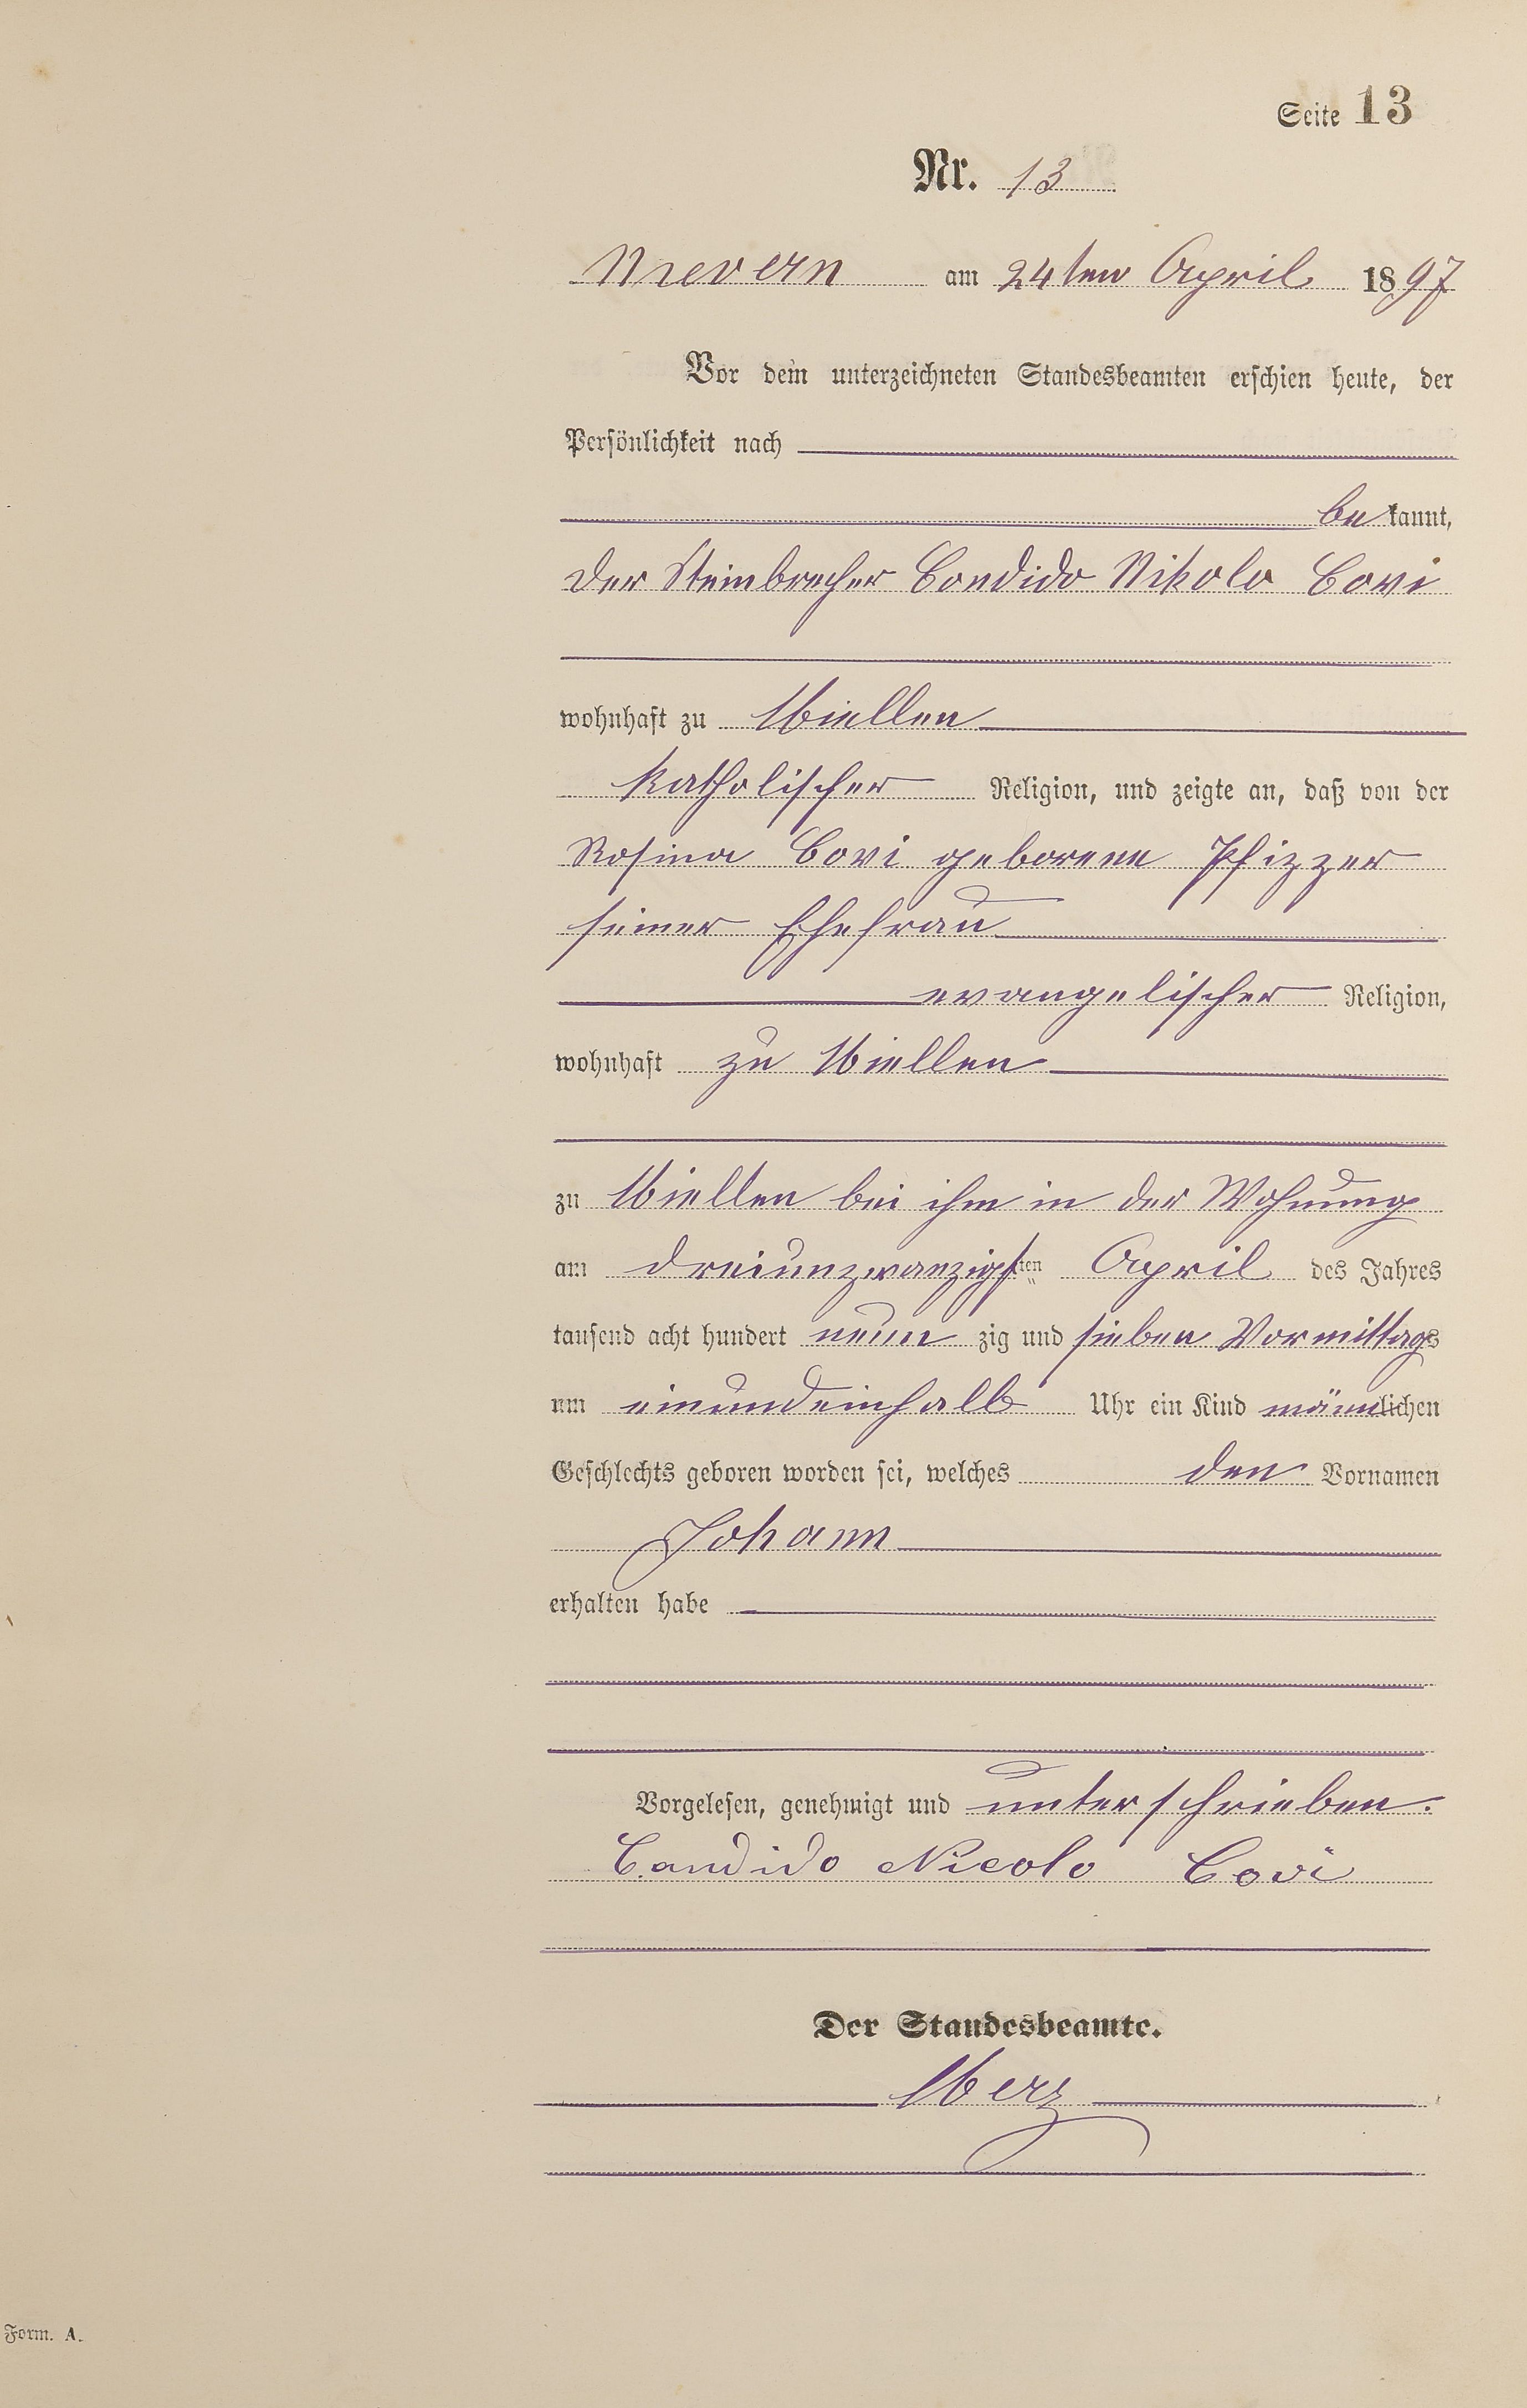 Seite 13
Nr. 13
Nievern am 24ten April 1897
Vor dem unterzeichneten Standesbeamten erschien heute, der
Persönlichkeit nach
be kannt,
der Steinbrecher Condido Nikolo Covi
wohnhaft zu Miellen
katholischer Religion, und zeigte an, daß von der
Rosina Covi geborene Pfizzer
seiner Ehefrau
evangelischer Religion,
wohnhaft zu Miellen
zu Miellen bei ihm in der Wohnung
am dreiunzwanzigsten April des Jahres
tausend acht hundert neun zig und sieben Vormittags
um einundeinhalb Uhr ein Kind männlichen
Geschlechts geboren worden sei, welches den Vornamen
Johann
erhalten habe
Vorgelesen, genehmigt und unterschrieben.
Candido Nicolo Covi
Der Standesbeamte.
Merz
Form. A.